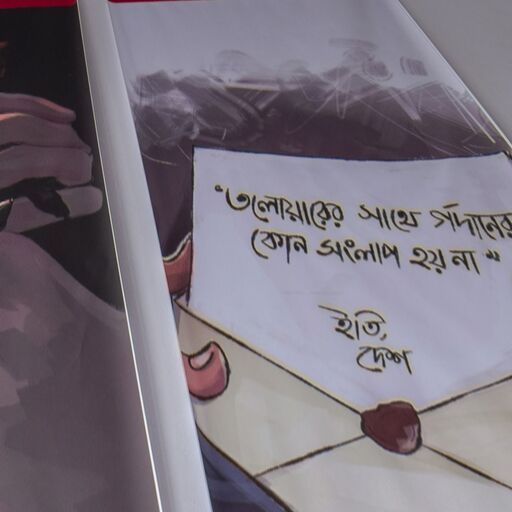 “তলোয়ারের সাথে গর্দানের
কোন সংলাপ হয় না”
ইতি,
দেশ